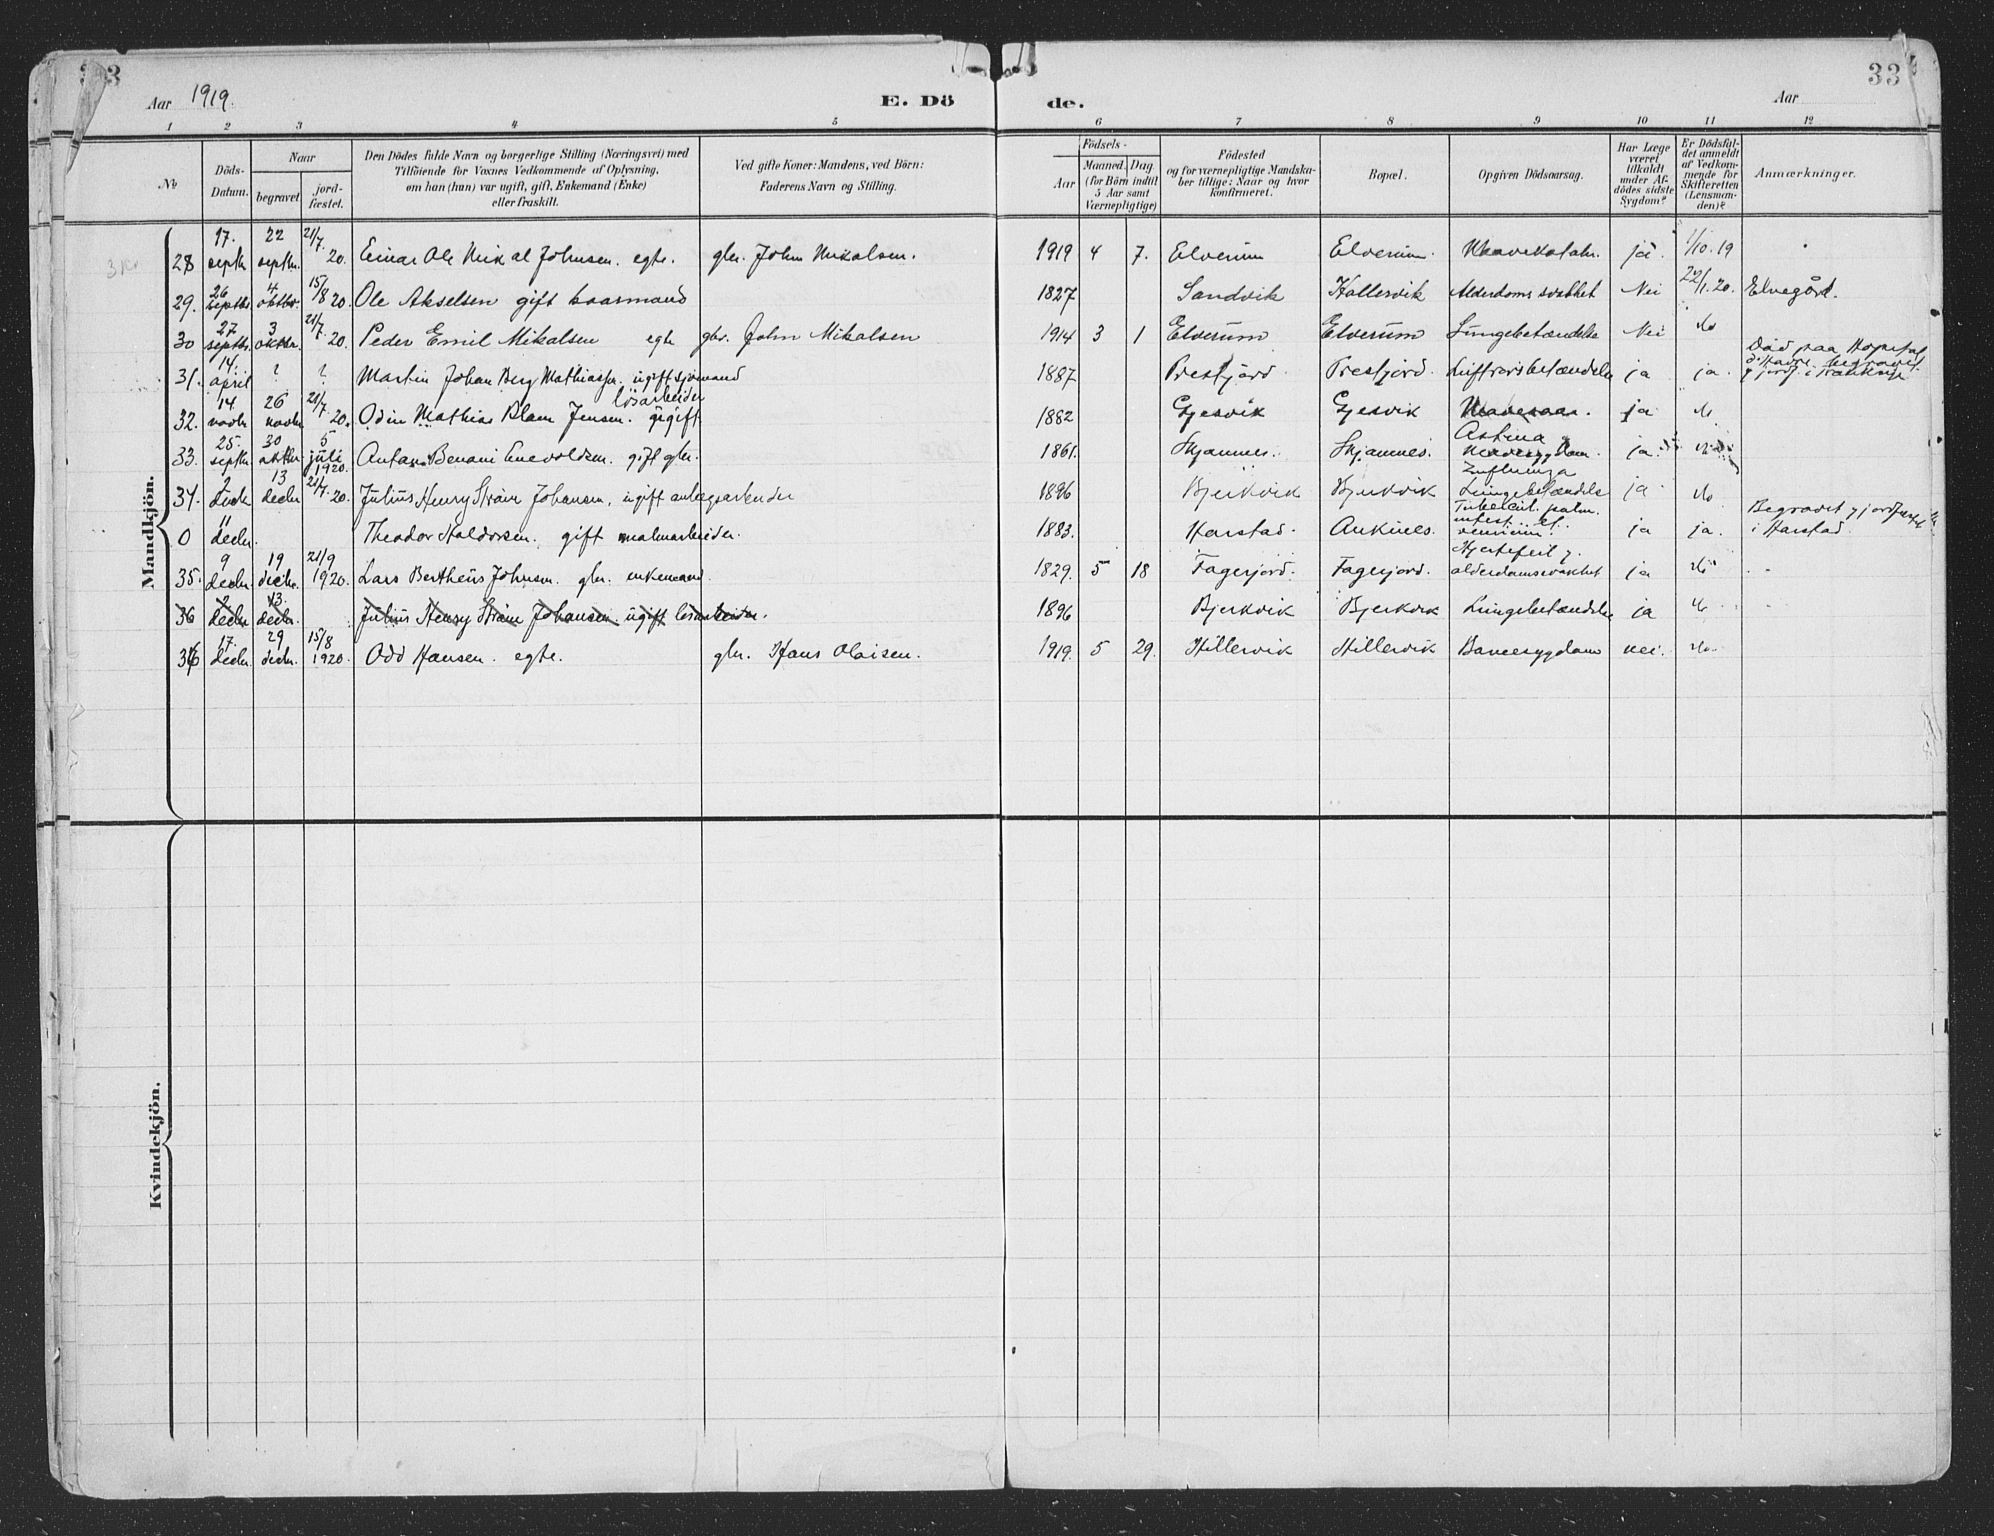 33
Aar 1919.
E. Döde.
Aar
1 2 3 4 5 6 7 8 9 10 11 12
No
Döds-Datum.
Naar
begravet
jord-fæstet.
Den Dödes fulde Navn og borgerlige Stilling (Næringsvei) med
Tilföiende for Voxnes Vedkommende af Oplysning,
om han (hun) var ugift, gift, Enkemand (Enke)
eller fraskilt.
Ved gifte Koner: Mandens, ved Börn:
Faderens Navn og Stilling.
Födsels-
Aar
Maaned. Dag
(for Börn indtil
5 Aar samt
Værnepligtige)
Födested
og for værnepligtige Mandska-
ber tillige: Naar og hvor
konfirmeret.
Bopæl.
Opgiven Dödsaarsag.
Har Læge
været
tilkaldt
under Af-
dödes sidste
Sygdom?
Er Dödsfal-
det anmeldt
af Vedkom-
mende for
Skifteretten
(Lensman-
den)?
Anmærkninger.
Mandkjön.
28 17. septbr 22 septbr. 21/7. 20. Einar Ole Mikal Johnsen. egte. gbr. John Mikalsen. 1919 4 7. Elverum Elverum. ja. 1/10.19
29. 26 septbr. 4 oktbr. 15/8 20. Ole Akselsen gift kaarmand 1827 Sandvik Hallervik Alderdomssvakhet Nei 22/1.20. Elvegård.
30 27 septbr. 3 oktbr. 21/7. 20. Peder Emil Mikalsen egte gbr. John Mikalsen 1914 3 1 Elverum Elverum Lungebetændelse Nei do
31. 14. april ? ? Martin Johan Berg Mathiassen, ugift sjömand 1887. Tresfjord. Luftrörsbetændelse ja ja. Död paa Hospital i Havre begravet
32. 14. novbr 26 novbr. 21/7. 20. Odin Mathias Blom Jensen. ugift lösarbeider 1882 Gjesvik Gjesvik ja do
33. 25. septbr 30 5 juli 1920. Benoni Enevoldsen. gift gbr. 1861. Skjomnes. Skjomnes. ja.
34. 2 decbr 13 decbr. 21/7. 20. Julius Henry Ström Johansen, ugift 1896 Bjerkvik Bjerkvik Influenza Lungebetændelse ja do
0 11 decbr. Theodor Haldorsen. gift malmarbeider. 1883. Harstad. Ankenes. ja ja. Begravet i Harstad.
35. 9 decbr. 19 decbr. 21/9 1920. Lars Bertheus Johnsen. gbr. enkemand. 1829. 5 18 Fagerjord. Fagerjord. Hjertefeil alderdomssvakhet ja do
36 2 decbr 13. decbr. Julius Henry Ström Johansen. ugift lösarbeider. 1896 Bjerkvik Bjerkvik Lungebetændelse ja do
36 17. decbr. 29 decbr. 15/8 1920. Odd Hansen. egte. gbr. Hans Olaisen. 1919. 5 29. Hillervik Hillervik Barnesygdom nei. do.
Kvindekjön.